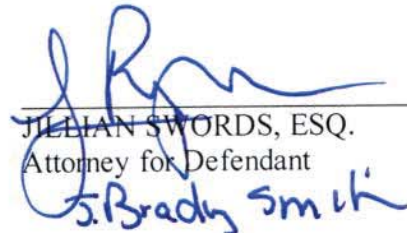 JILLIAN SWORDS, ESQ.
Attorney for Defendant
J. Brady Smith